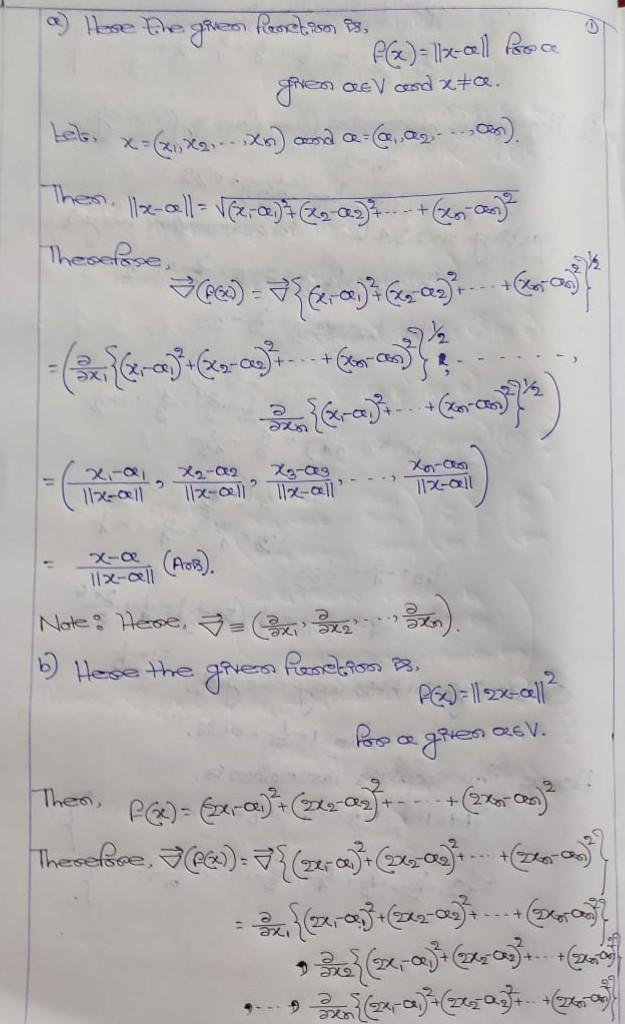 ①
a) Here the given function is,
f(x) = ||x-a|| for a
given a∈V and x≠a.
Let, x = (x₁, x₂, ..., xₙ) and a = (a₁, a₂, ..., aₙ).
Then, ||x-a|| = √((x₁-a₁)²+(x₂-a₂)²+....+(xₙ-aₙ)²)
Therefore,
∇⃗(f(x)) = ∇⃗{(x₁-a₁)²+(x₂-a₂)²+....+(xₙ-aₙ)²}^{1/2}
= (∂/∂x₁{(x₁-a₁)²+(x₂-a₂)²+....+(xₙ-aₙ)²}^{1/2}, ......,
∂/∂xₙ{(x₁-a₁)²+....+(xₙ-aₙ)²}^{1/2})
= ((x₁-a₁)/||x-a||, (x₂-a₂)/||x-a||, (x₃-a₃)/||x-a||, ...., (xₙ-aₙ)/||x-a||)
= (x-a)/||x-a|| (Ans).
Note: Here, ∇⃗ ≡ (∂/∂x₁, ∂/∂x₂, ..., ∂/∂xₙ).
b) Here the given function is,
f(x) = ||2x-a||²
for a given a∈V.
Then, f(x) = (2x₁-a₁)²+(2x₂-a₂)²+.....+(2xₙ-aₙ)²
Therefore, ∇⃗(f(x)) = ∇⃗{(2x₁-a₁)²+(2x₂-a₂)²+....+(2xₙ-aₙ)²}
= ∂/∂x₁{(2x₁-a₁)²+(2x₂-a₂)²+....+(2xₙ-aₙ)²}
, ∂/∂x₂{(2x₁-a₁)²+(2x₂-a₂)²+...+(2xₙ-aₙ)²}
, ...., ∂/∂xₙ{(2x₁-a₁)²+(2x₂-a₂)²+...+(2xₙ-aₙ)²}